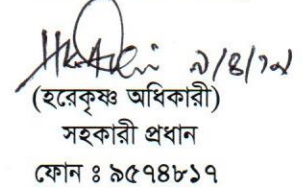 (হরেকৃষ্ণ অধিকারী)
সহকারী প্রধান
ফোন ঃ ৯৫৭৪৮১৭